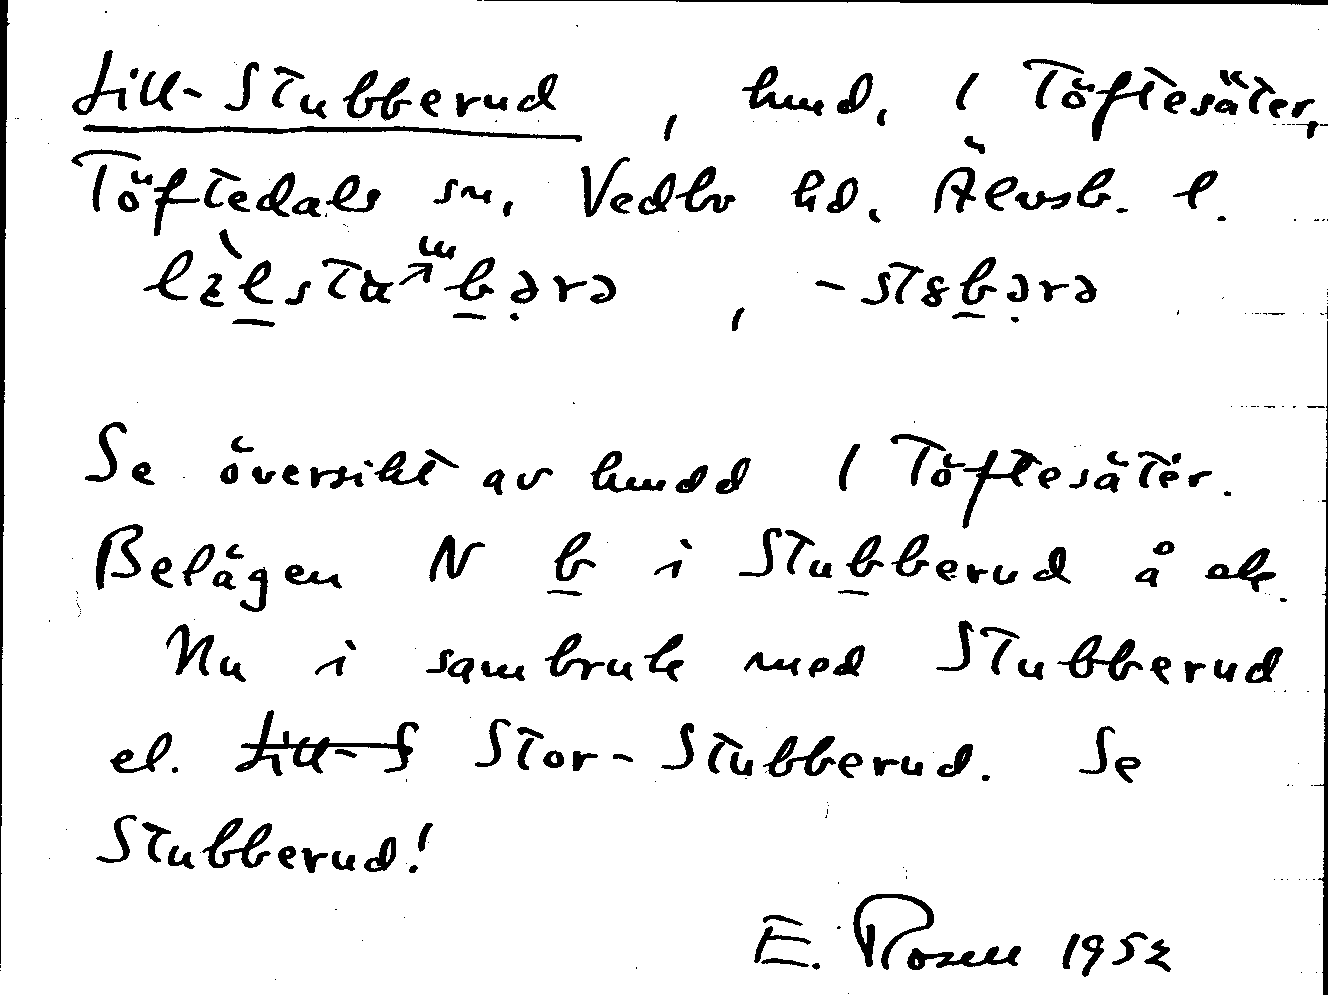 Lill-Stubberud, hmd, 1 Töftesäter,
Töftedals sn, Vedbo hd. Älvsb. l.
Se översikt av hmdd 1 Töftesäter.
Belägen N b i Stubberud å ek.
Nu i sambruk med Stubberud
el. Lill-S Stor-Stubberud. Se
Stubberud!
E. Rosell 1952